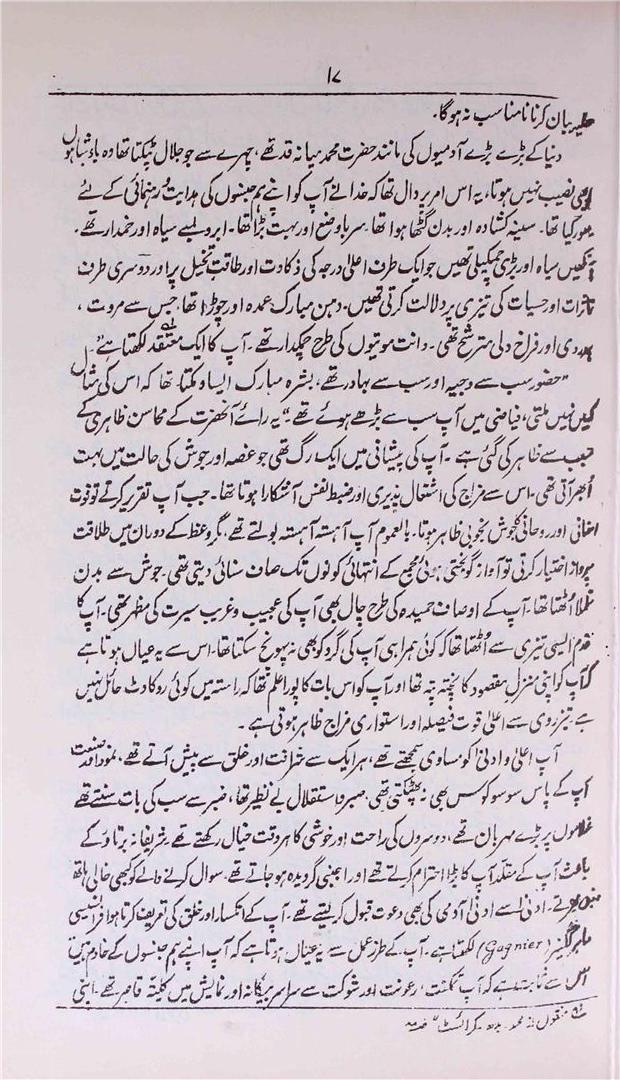 ۱۷
حلیہ بیان کرنا نامناسب نہ ہوگا۔
دنیا کے بڑے بڑے آدمیوں کی مانند حضرت محمد میانہ قد تھے، چہرے سے جو جلال ٹپکتا تھا وہ بادشاہوں
نصیب نہیں ہوتا، یہ اس امر پر دال تھا کہ خدا نے آپ کو اپنے ہم جنسوں کی ہدایت و رہنمائی کے لئے
کیا تھا۔ سینہ کشادہ اور بدن گٹھا ہوا تھا۔ سر باوضع اور بہت بڑا تھا۔ ابرو لمبے سیاہ اور خمدار تھے۔
آنکھیں سیاہ اور بڑی چمکیلی تھیں جو ایک طرف اعلیٰ درجہ کی ذکاوت اور طاقت تخیل پر اور دوسری طرف
تاثرات اور حسیات کی تیزی پر دلالت کرتی تھیں۔ دہن مبارک عمدہ اور چوڑا تھا، جس سے مروت،
ہمدردی اور فراخ دلی مترشح تھی۔ دانت موتیوں کی طرح چمکدار تھے۔ آپ کا ایک معتقد لکھتا ہے
"حضور سب سے وجیہ اور سب سے بہادر تھے، بشرہ مبارک ایسا دمکتا تھا کہ اس کی مثال
کہیں نہیں ملتی، فیاضی میں آپ سب سے بڑھے ہوئے تھے۔" یہ رائے آنحضرت کے محاسن ظاہری کے
سبب سے ظاہر کی گئی ہے۔ آپ کی پیشانی میں ایک رگ تھی جو غصہ اور جوش کی حالت میں بہت
اُبھر آتی تھی۔ اس سے مزاج کی اشتعال پذیری اور ضبط نفس آشکارا ہوتا تھا۔ جب آپ تقریر کرتے تو قوت
اور روحانی جوش بخوبی ظاہر ہوتا۔ بالعموم آپ آہستہ آہستہ بولتے تھے، مگر وعظ کے دوران میں طلاقت
پرواز اختیار کرتی تو آواز گونجتی ہوئی مجمع کے انتہائی کونوں تک صاف سنائی دیتی تھی۔ جوش سے بدن
تلملا اُٹھتا تھا۔ آپ کے اوصاف حمیدہ کی طرح چال بھی آپ کی عجیب و غریب سیرت کی مظہر تھی۔ آپ کا
قدم ایسی تیزی سے اُٹھتا تھا کہ کوئی ہمراہی آپ کی گرد کو بھی نہ پہونچ سکتا تھا۔ اس سے یہ عیاں ہوتا ہے
کہ آپ کو اپنی منزل مقصود کا پختہ پتہ تھا اور آپ کو اس بات کا پورا علم تھا کہ راستہ میں کوئی روکاوٹ حائل نہیں
ہے۔ تیز روی سے اعلیٰ قوت فیصلہ اور استواری مزاج ظاہر ہوتی ہے۔
آپ اعلیٰ و ادنیٰ کو مساوی سمجھتے تھے، ہر ایک سے شرافت اور خلق سے پیش آتے تھے، نمود اور صنعت
آپ کے پاس سو سو کوس بھی نہ پھٹکتی تھی۔ صبر و استقلال بے نظیر تھا، صبر سے سب کی بات سنتے تھے
غلاموں پر بڑے مہربان تھے، دوسروں کی راحت اور خوشی کا ہر وقت خیال رکھتے تھے۔ شریفانہ برتاؤ کے
باعث آپ کے مقلد آپ کا بڑا احترام کرتے تھے اور اجنبی گرویدہ ہو جاتے تھے۔ سوال کرنے والے کو کبھی خالی ہاتھ
ادنیٰ سے ادنیٰ آدمی کی بھی دعوت قبول کر لیتے تھے۔ آپ کے انکسار اور خلق کی تعریف کرتا ہوا فرانسیسی
گگنیر (Gagnier) لکھتا ہے۔ آپ کے طرز عمل سے یہ عیاں ہوتا ہے کہ آپ اپنے ہم جنسوں کے خادم ہیں
اس سے ثابت ہے کہ آپ تمکنت، رعونت اور شوکت سے سراسر بیگانہ اور نمایش میں کلیتہً قاصر تھے۔ اپنی
منقول از محمد۔ بدھ۔ کرائسٹ